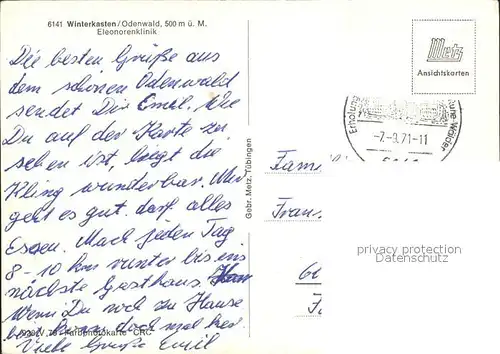 6141 Winterkasten/Odenwald, 500 m ü. M.
Eleonorenklinik
Die besten Grüße aus
dem schönen Odenwald
sendet Dir Emil. Wie
Du auf der Karte zu
sehen ist, liegt die
Kling wunderbar. Mir
geht es gut. darf alles
Essen. Mach jeden Tag
8-10 km runter bis ins
nächste Gasthaus.
Wenn Du noch zu Hause
doch mal her
Viele Grüße Emil
Farbenfotokarte CRC
Gebr. Metz, Tübingen
Metz
Ansichtskarten
Erholung
-7.-9.71-11
Fam
Fran
privacy protection
Watermark